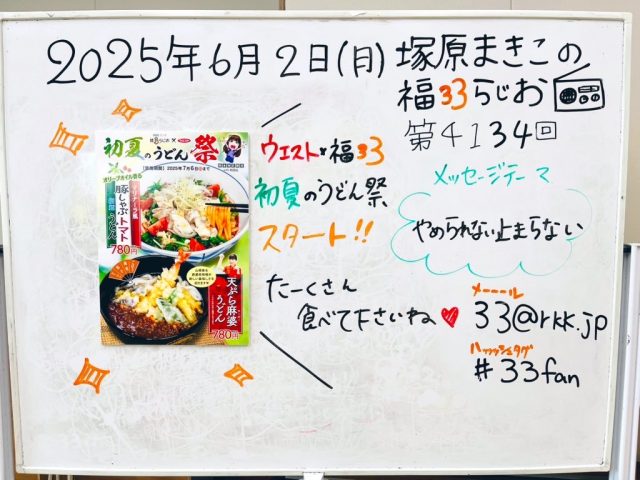 2025年6月2日(月)
塚原まきこの
福33らじお
第4134回
メッセージテーマ
やめられない止まらない
メーーール
33@rkk.jp
ハッッシュタグ
#33fan
ウエスト×福33
初夏のうどん祭
スタート!!
たーくさん
食べて下さいね
初夏のうどん祭
2025年7月6日
豚しゃぶトマト
うどん
780円
天ぷら麻婆
うどん
780円